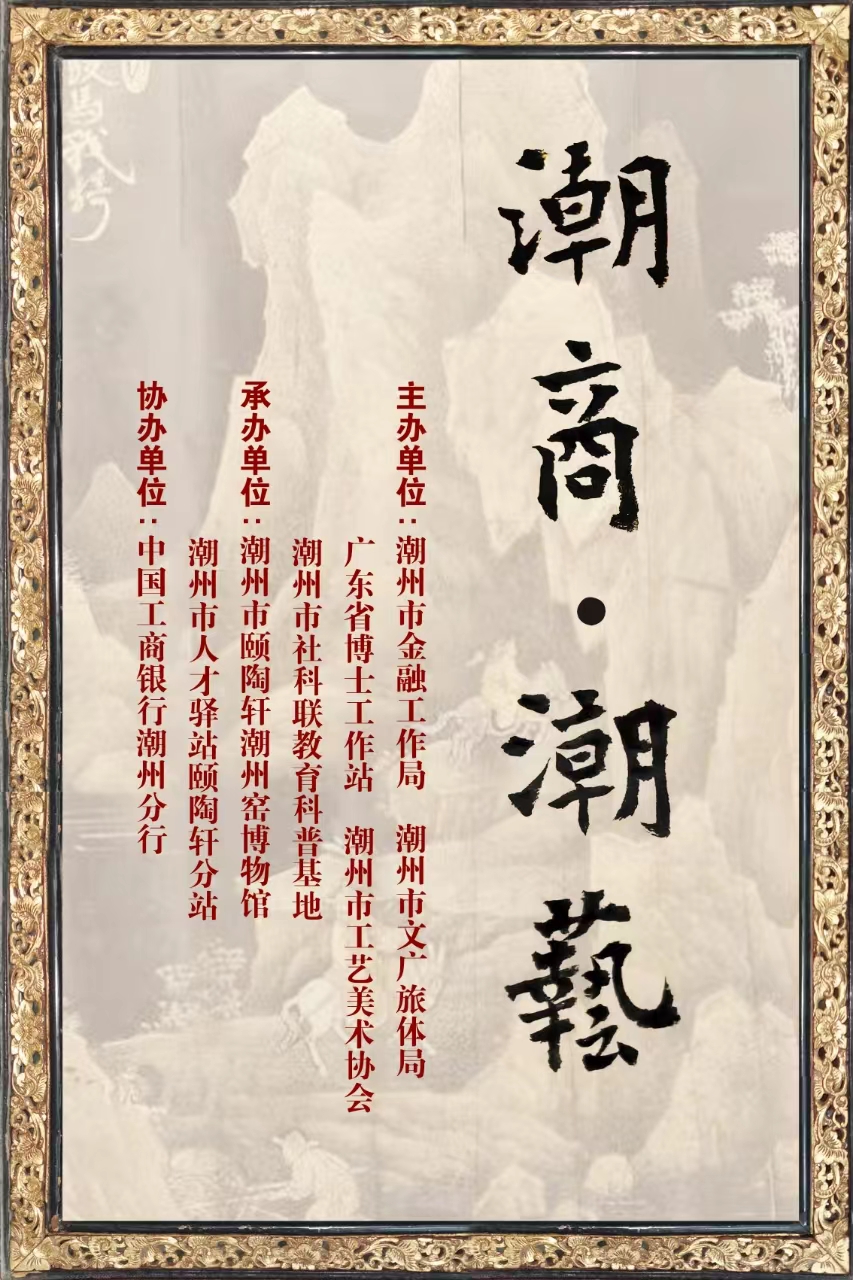 潮商·潮藝
主办单位:潮州市金融工作局 潮州市文广旅体局
广东省博士工作站 潮州市工艺美术协会
潮州市社科联教育科普基地
承办单位:潮州市颐陶轩潮州窑博物馆
潮州市人才驿站颐陶轩分站
协办单位:中国工商银行潮州分行